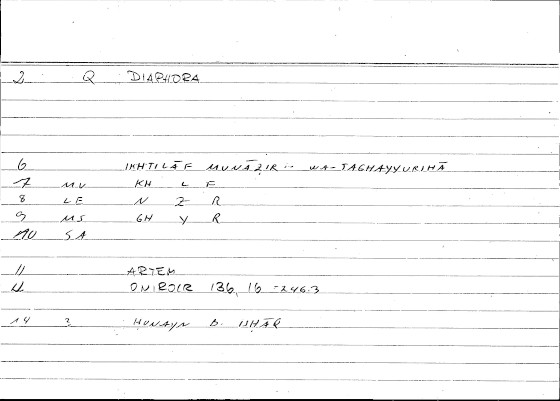 2 Q DIAPHORA
6 IKHTILĀF MUNĀẒIR -- WA-TAGHAYYURIHĀ
7 MU KH L F
8 LE N Ẓ R
9 MS GH Y R
10 SA
11 ARTEM
ONIROCR 136, 16 = 246.3
14 2 ḤUNAYN B. ISḤĀQ